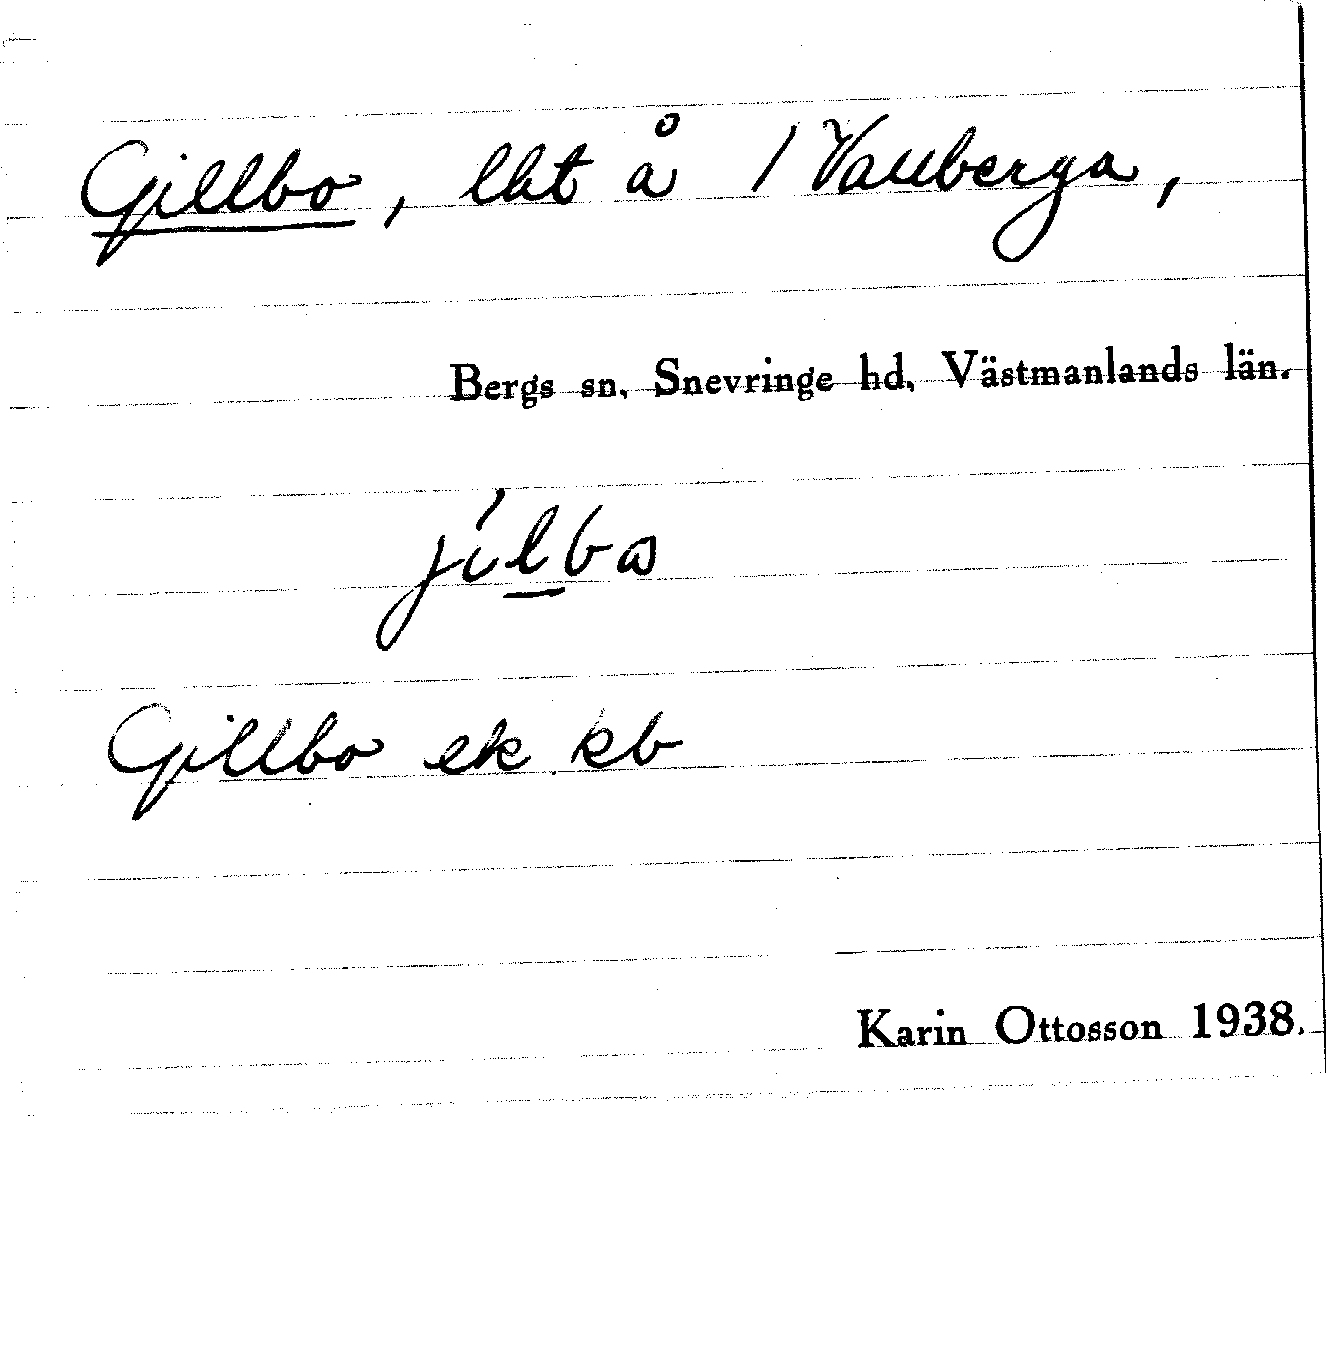 Gillbo, lht å 1 Valberga,
Bergs sn, Snevringe hd, Västmanlands län.
Gillbo ek kb
Karin Ottosson 1938.